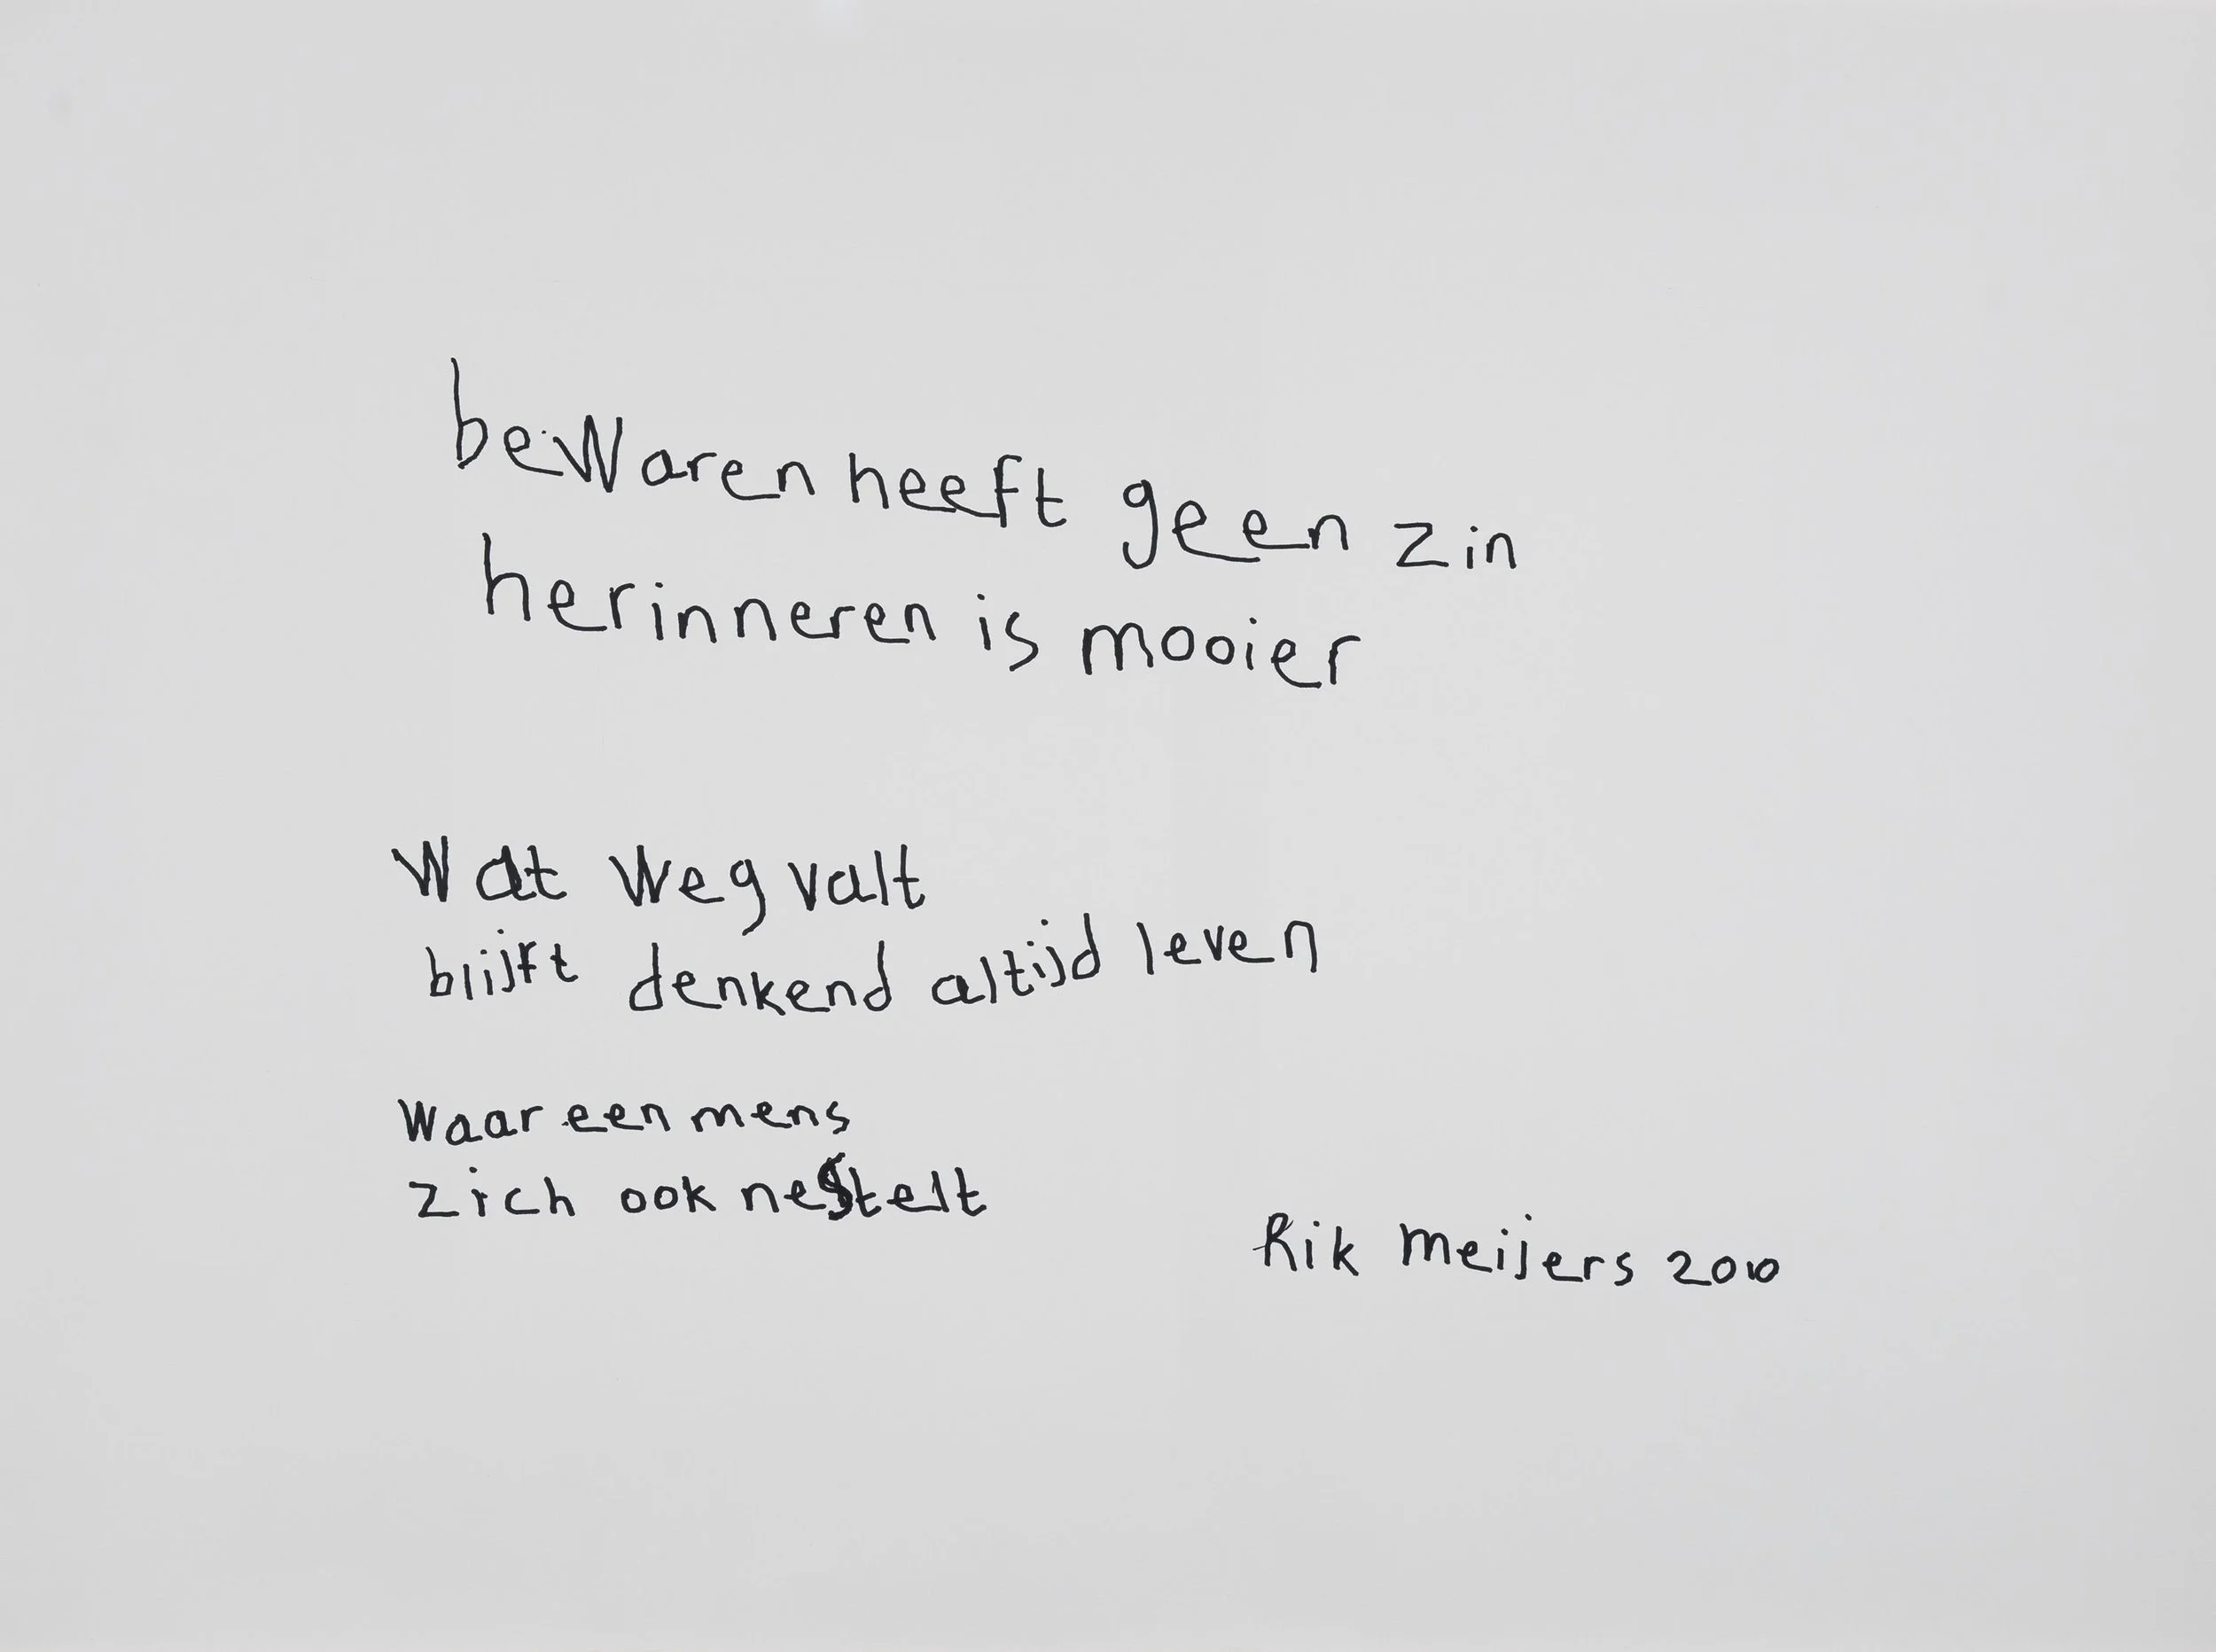 bewaren heeft geen zin
herinneren is mooier
Wat weg valt
blijft denkend altijd leven
Waar een mens
zich ook nestelt
Rik Meijers 2010